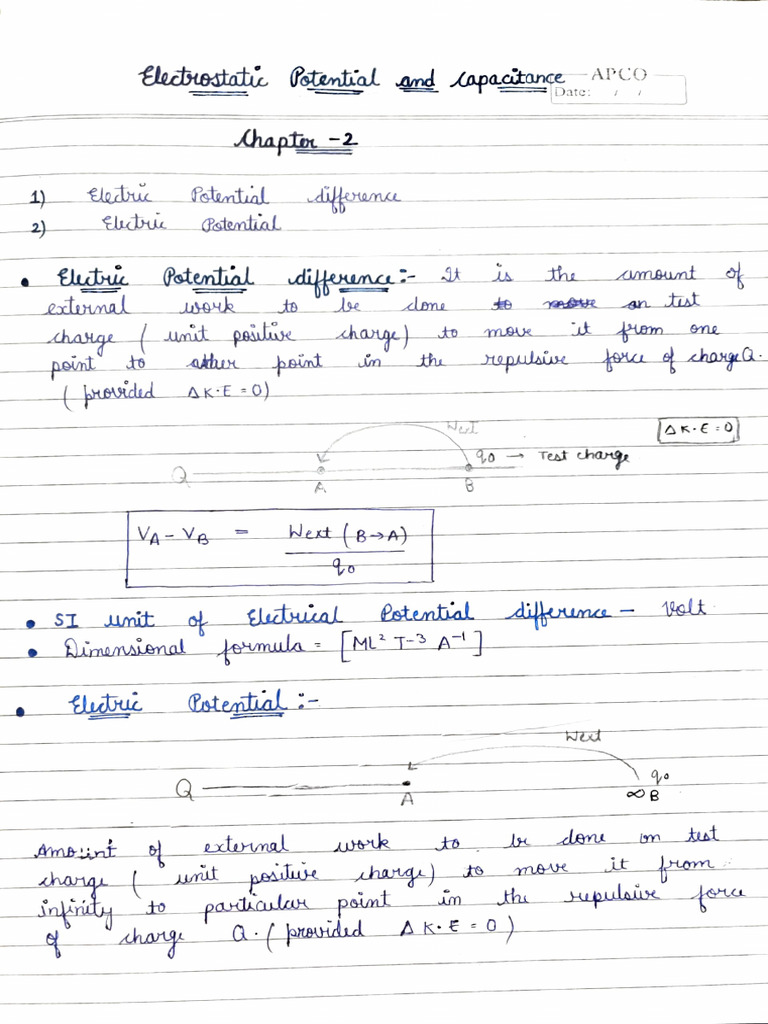 Electrostatic Potential and Capacitance
APCO
Date: / /
Chapter - 2
1) Electric Potential difference
2) Electric Potential
• Electric Potential difference :- It is the amount of
external work to be done to move on test
charge ( unit positive charge) to move it from one
point to other point in the repulsive force of charge Q.
( provided Δ K.E = 0)
Wext
Δ K.E = 0
Q A B q0 → Test charge
VA - VB = Wext ( B → A)
q0
• SI unit of Electrical Potential difference - Volt
• Dimensional formula = [ML² T-³ A-¹]
• Electric Potential :-
Wext
Q A ∞ B q0
Amount of external work to be done on test
charge ( unit positive charge) to move it from
infinity to particular point in the repulsive force
of charge Q. ( provided Δ K.E = 0 )